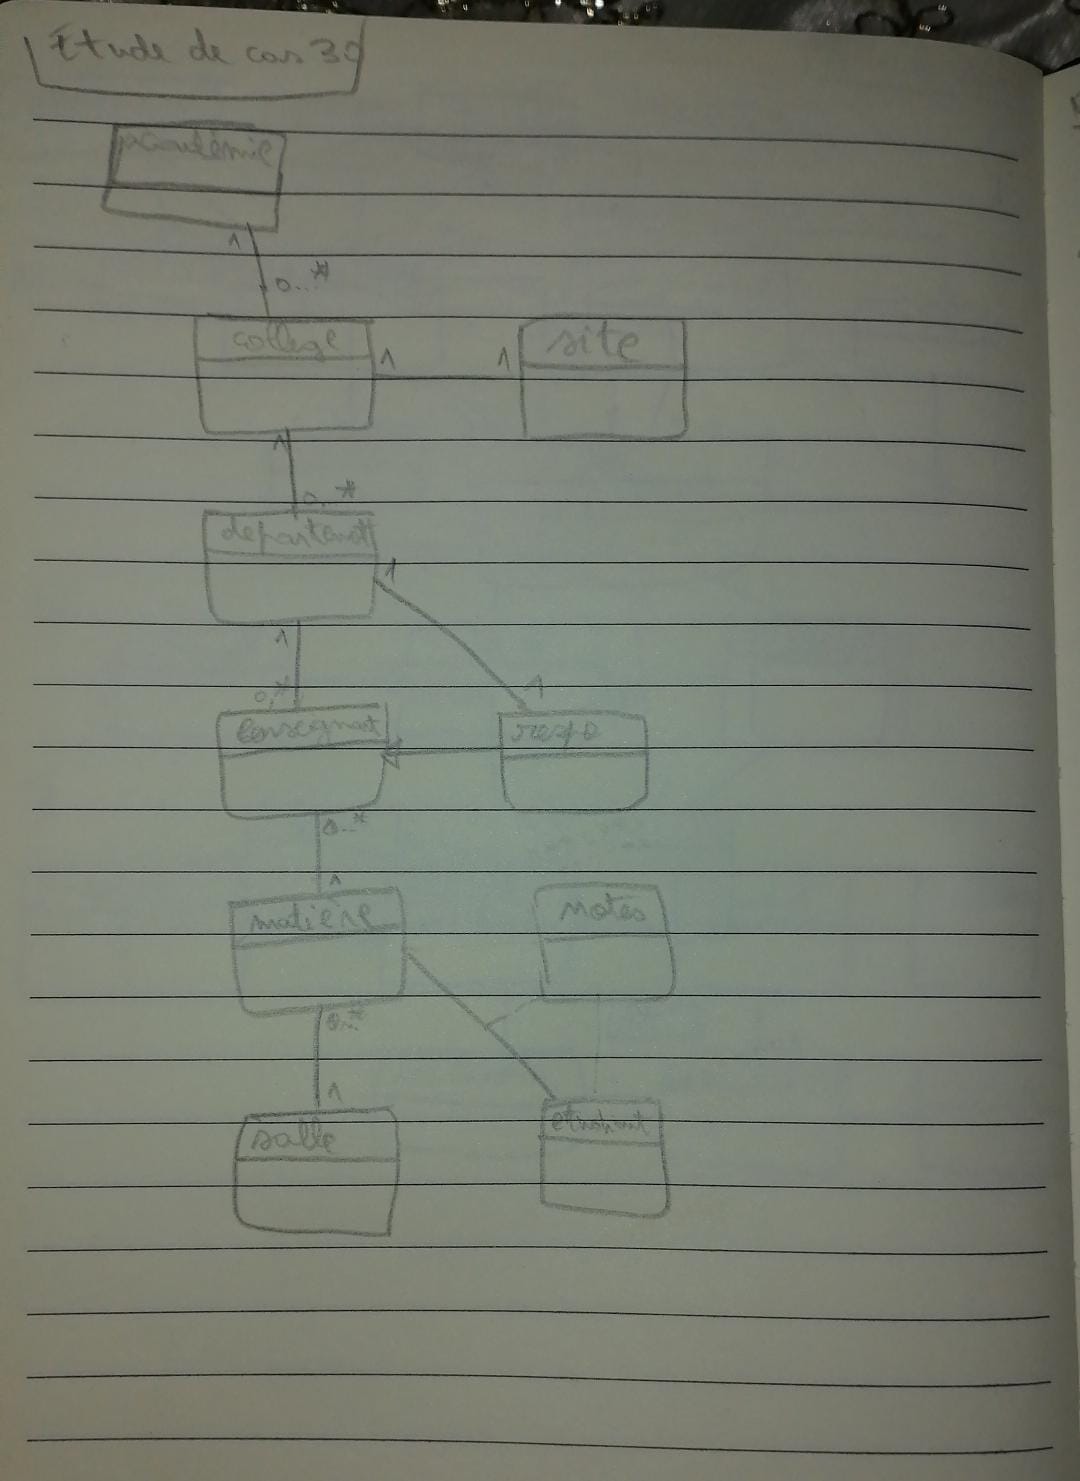 Étude de cas 30
Académie
1
0...*
college
1
1
site
1
0..*
departemt
1
1
0,*
1
Enseignat
respo
0..*
1
matière
notes
0..*
1
salle
etudiant